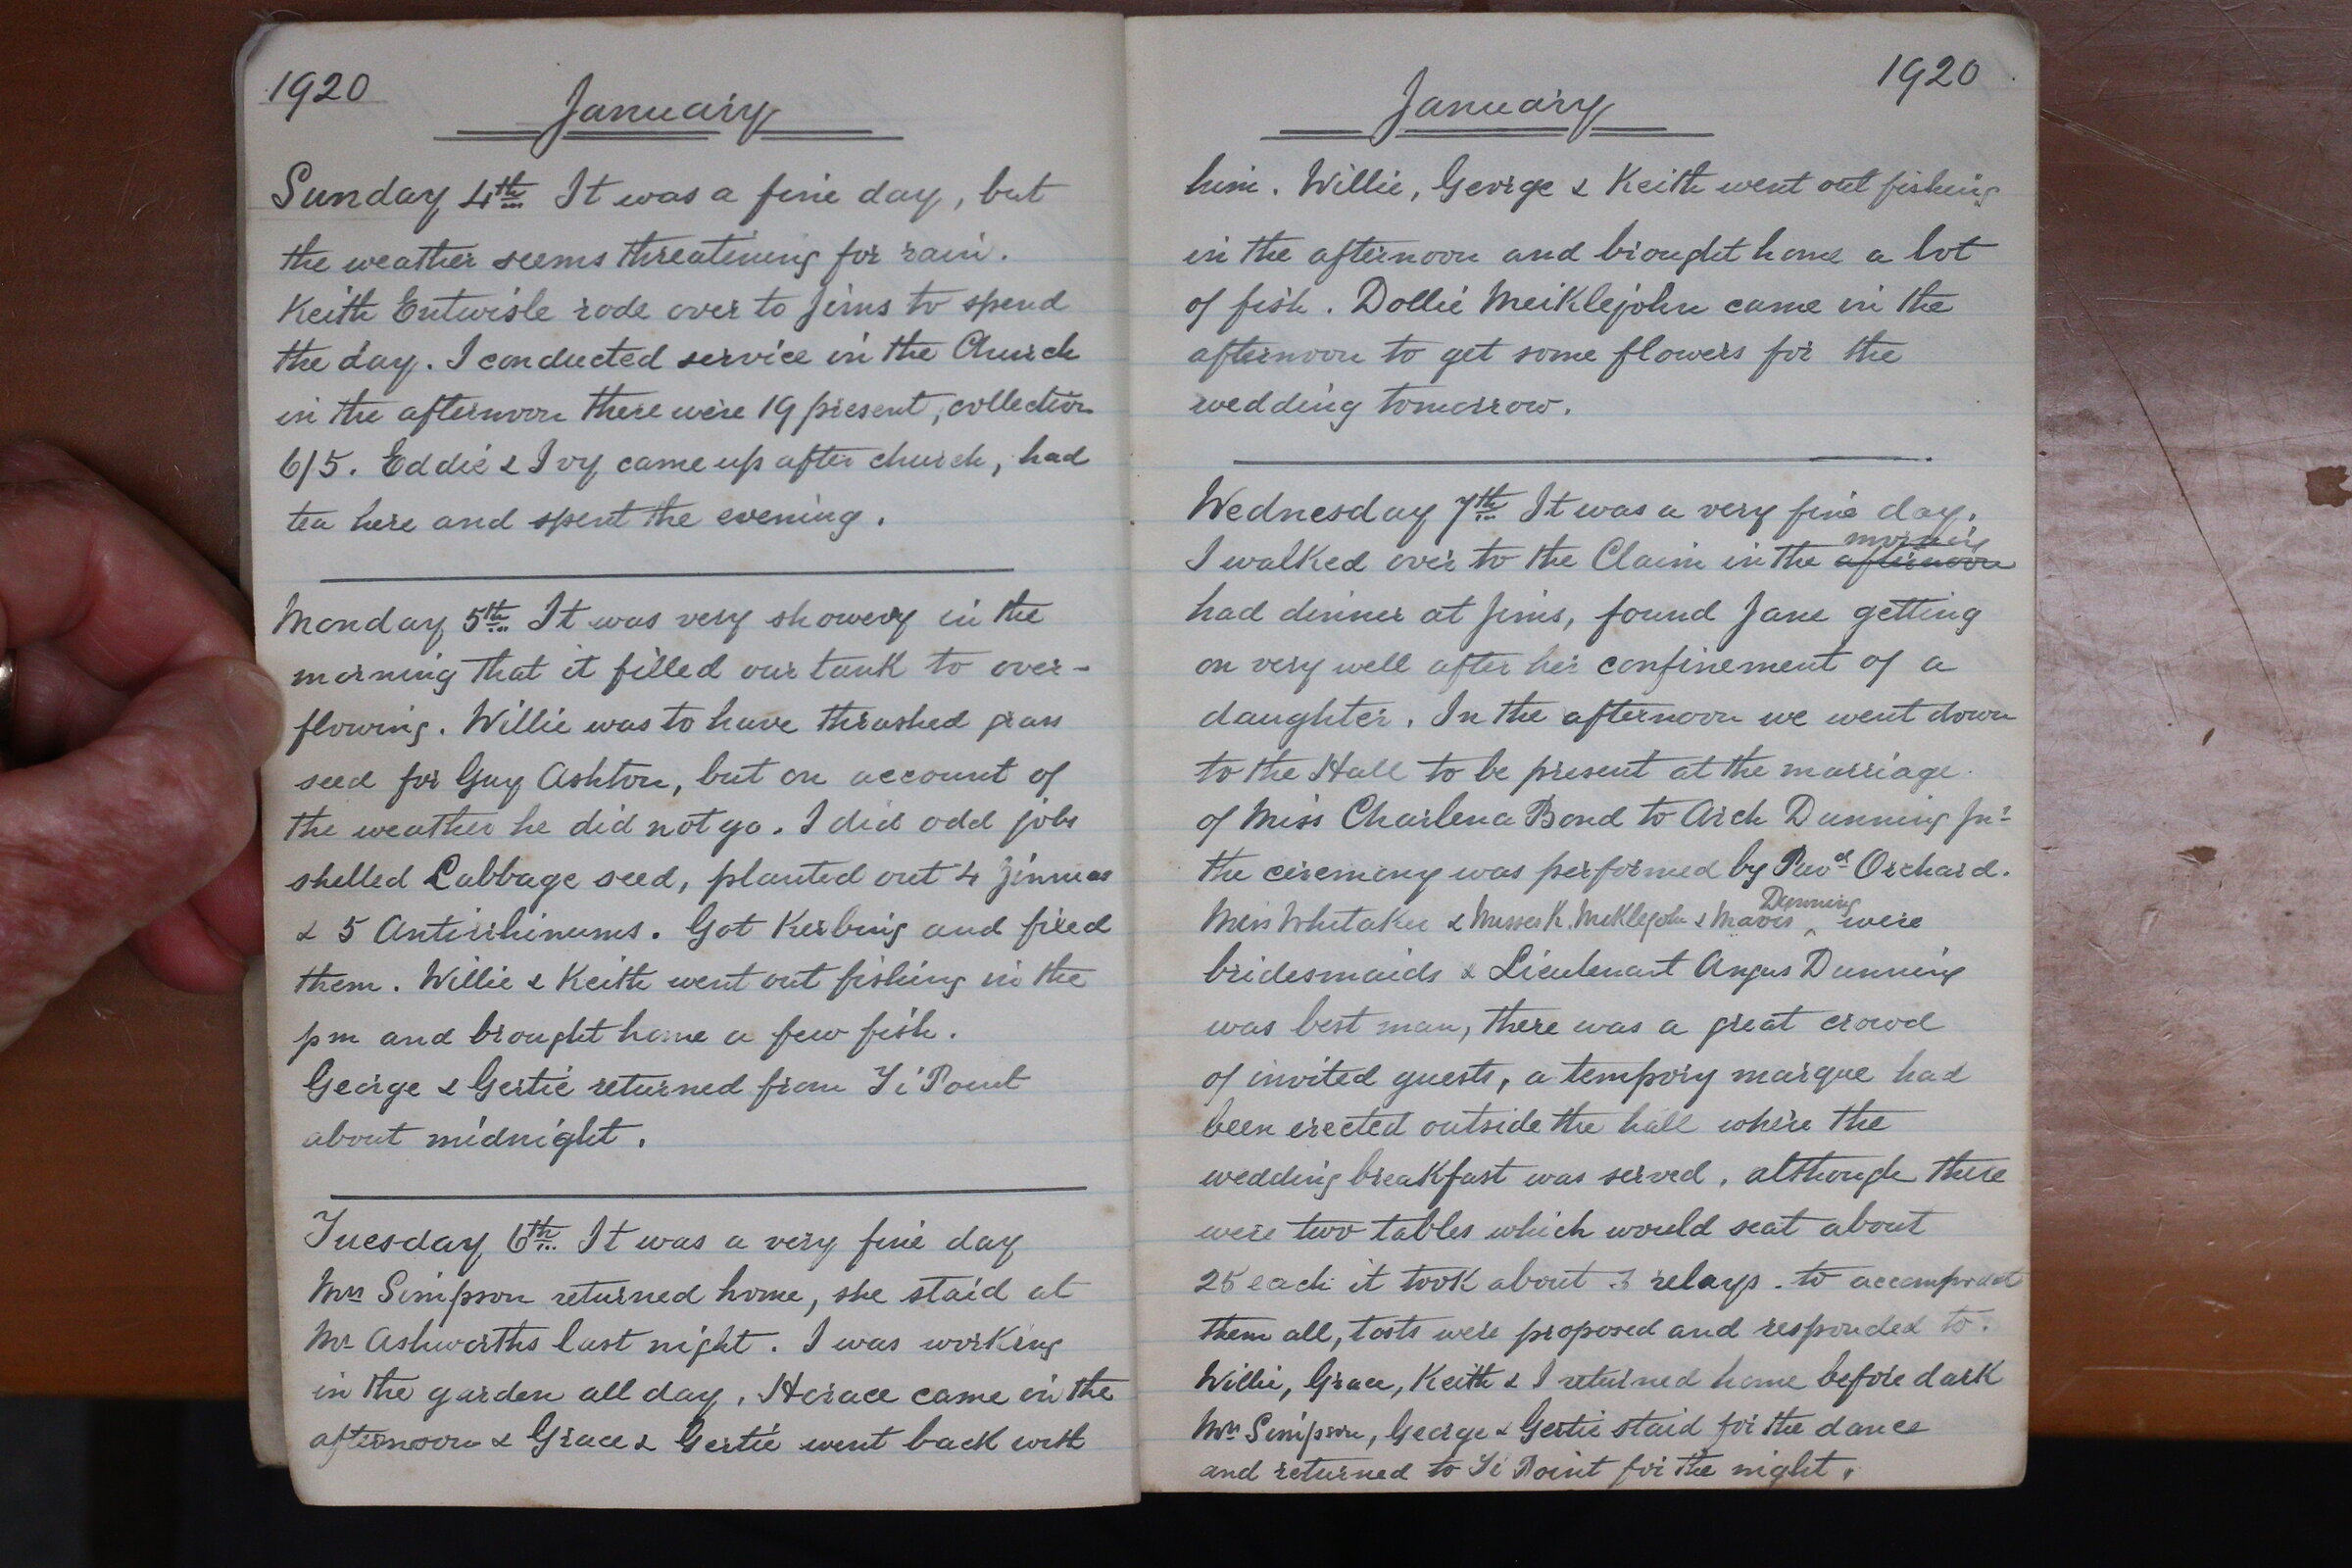 1920
January
Sunday 4th It was a fine day, but
the weather seems threatening for rain.
Keith Entwisle rode over to Jims to spend
the day. I conducted service in the Church
in the afternoon there were 19 present, collection
6/5. Eddie & Ivy came up after church, had
tea here and spent the evening.
Monday 5th It was very showery in the
morning that it filled our tank to over-
flowing. Willie was to have thrashed grass
seed for Guy Ashton, but on account of
the weather he did not go. I did odd jobs
shelled Cabbage seed, planted out 4 Zinneas
& 5 Antirrhinums. Got Kerbing and fixed
them. Willie & Keith went out fishing in the
pm and brought home a few fish.
George & Gertie returned from Ti Point
about midnight.
Tuesday 6th It was a very fine day
Mrs Simpson returned home, she staid at
Mr Ashworths last night. I was working
in the garden all day. Horace came in the
afternoon & Grace & Gertie went back with
1920
January
him. Willie, George & Keith went out fishing
in the afternoon and brought home a lot
of fish. Dollie Meiklejohn came in the
afternoon to get some flowers for the
wedding tomorrow.
Wednesday 7th It was a very fine day.
morning
I walked over to the Claim in the afternoon
had dinner at Jims, found Jane getting
on very well after her confinement of a
daughter. In the afternoon we went down
to the Hall to be present at the marriage
of Miss Charlena Bond to Arch Dunning Jnr
the ceremony was performed by Revd Orchard.
Dunning
Miss Whitaker & Misses K. Meiklejohn & Mavis ^ were
bridesmaids & Lieutenant Angus Dunning
was best man, there was a great crowd
of invited guests, a tempory marque had
been erected outside the hall where the
wedding breakfast was served, although there
were two tables which would seat about
25 each it took about 3 relays to
them all, tosts were proposed and responded to.
Willie, Grace, Keith & I returned home before dark
Mrs Simpson, George & Gertie staid for the dance
and returned to Ti Point for the night.